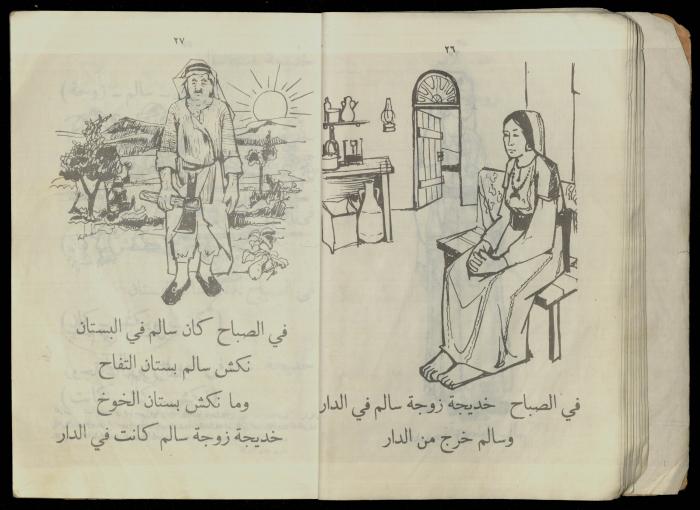 ٢٦
في الصباح خديجة زوجة سالم في الدار
وسالم خرج من الدار
٢٧
في الصباح كان سالم في البستان
نكش سالم بستان التفاح
وما نكش بستان الخوخ
خديجة زوجة سالم كانت في الدار